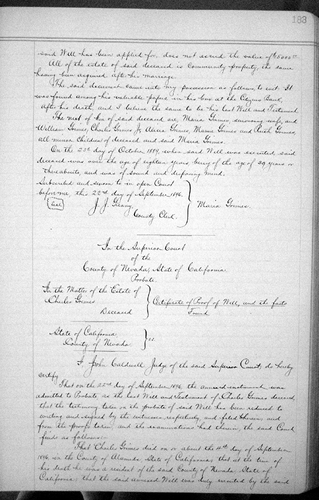 183
said Will has been applied for, does not exceed the value of $5000.00
All of the estate of said deceased is Community property, the same
having been acquired after his marriage.
The said document came into my possession as follows, to wit: It
was found among his valuable papers in his box at the Citizens Bank,
after his death, and I believe the same to be his last Will and Testament.
The next of kin of said deceased are, Maria Grimes, surviving wife, and
William Grimes, Charles Grimes Jr, Grimes, Maria Grimes and Grimes
all minor children of deceased and said Maria Grimes.
On the 23d day of October 1884, when said Will was executed, said
deceased was over the age of eighteen years being of the age of 39 years or
thereabouts, and was of sound and disposing mind.
Subscribed and sworn to in open Court
before me, this 22d day of September 1896.
Seal J. J. Greany Maria Grimes
County Clerk.
In the Superior Court
of the
County of Nevada, State of California
Probate.
In the Matter of the Estate of
Charles Grimes
Deceased
Certificate of Proof of Will, and the facts
Found
State of California
County of Nevada ss
I, John Caldwell, Judge of the said Superior Court, do hereby
certify
That on the 22nd day of September, 1896, the annexed instrument was
admitted to Probate as the last Will and Testament of Charles Grimes deceased,
that the testimony taken on the probate of said Will has been reduced to
writing and signed by the witnesses respectively and filed herein and
from the proofs taken and the examinations had therein, the said Court
finds as follows:
That Charles Grimes died on or about the day of September
1896 in the County of Alameda, State of California; that at the time of
his death he was a resident of the said County of Nevada, State of
California; that the said annexed Will was duly executed by the said